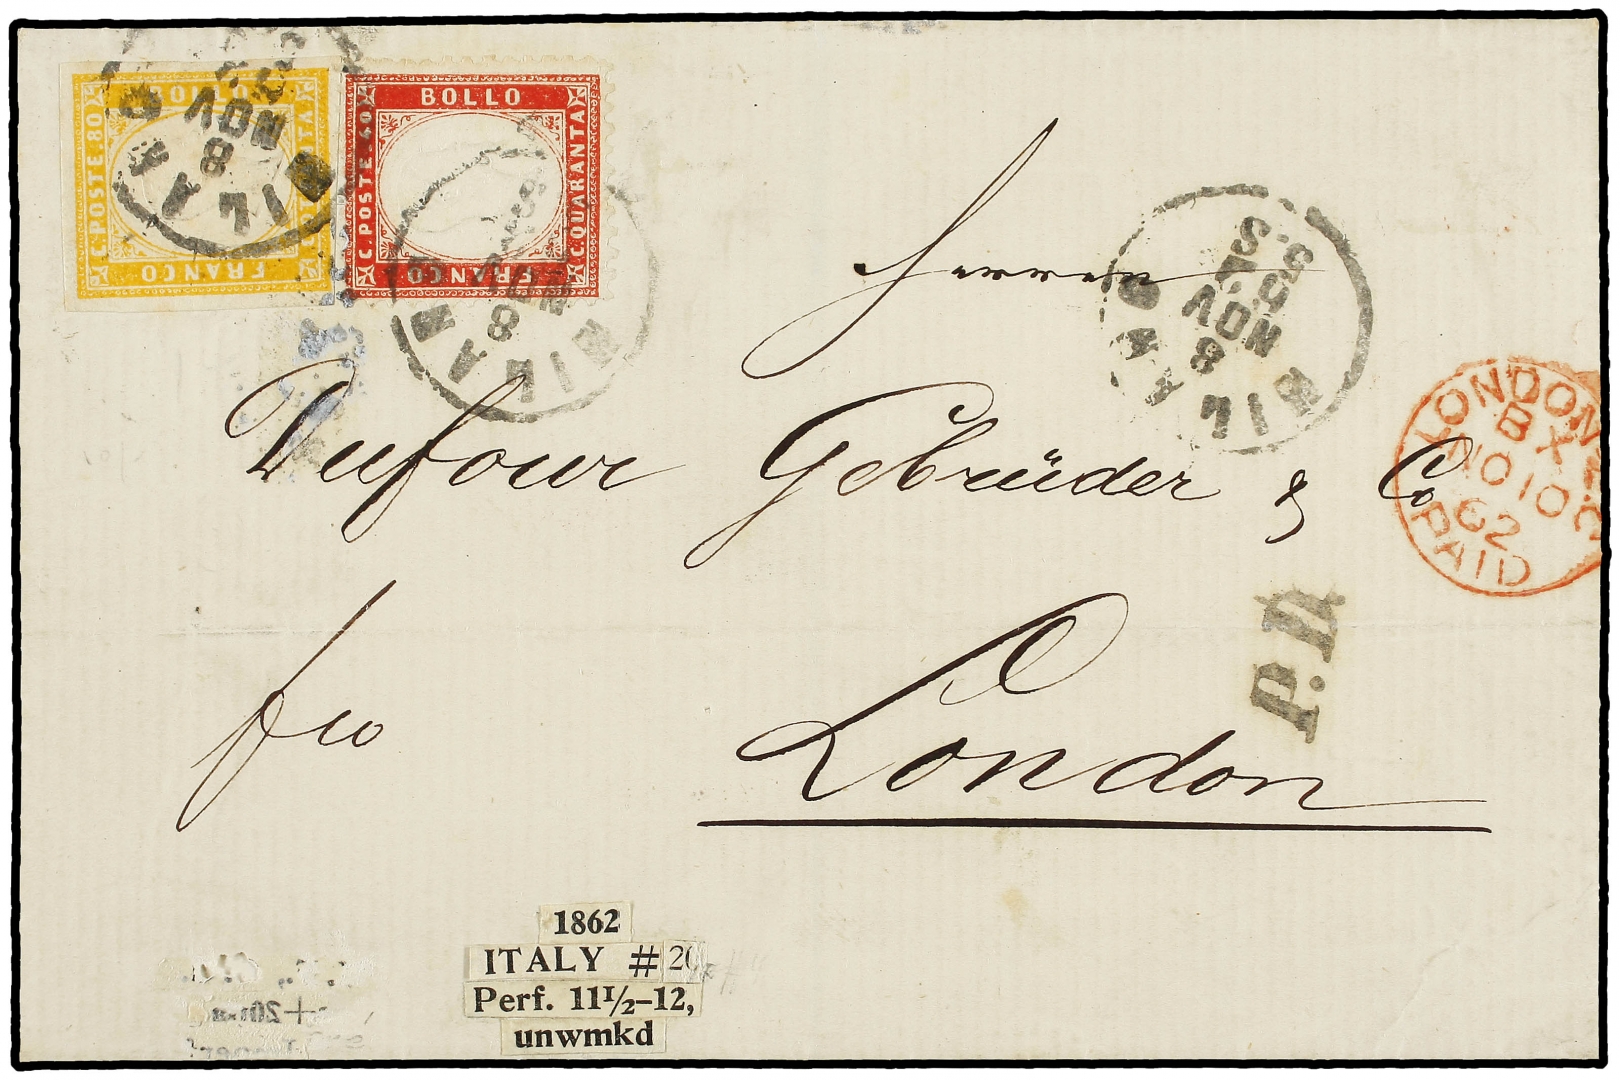 BOLLO
C. POSTE. 80
FRANCO
BOLLO
C. POSTE. 40
C. QUARANTA
FRANCO
MILANO
8
NOV
MILANO
8
NOV
MILANO
8
NOV
5.S
LONDON
BX
NO 10
62
PAID
Herren
Dufour Gebrüder & Co
P.D.
fco
London
1862
ITALY #20
Perf. 11½–12,
unwmkd